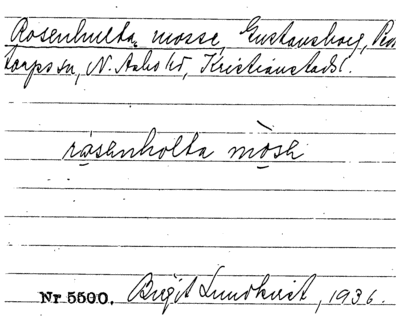 Rosenhulta mosse, Gustavsborg,
torps sn, N. Åsbo hd, Kristianstads l.
råsenholta mòse
Nr. 5500. Birgit Lundkvist, 1936.